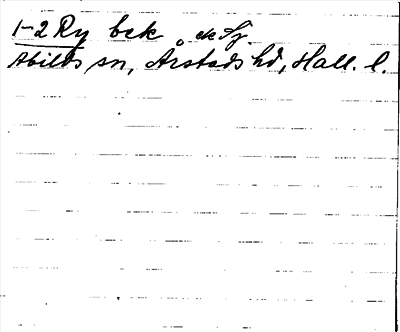 1-2 Ry bek ek Sj
Abilds sn, Årstads hd, Hall. l.